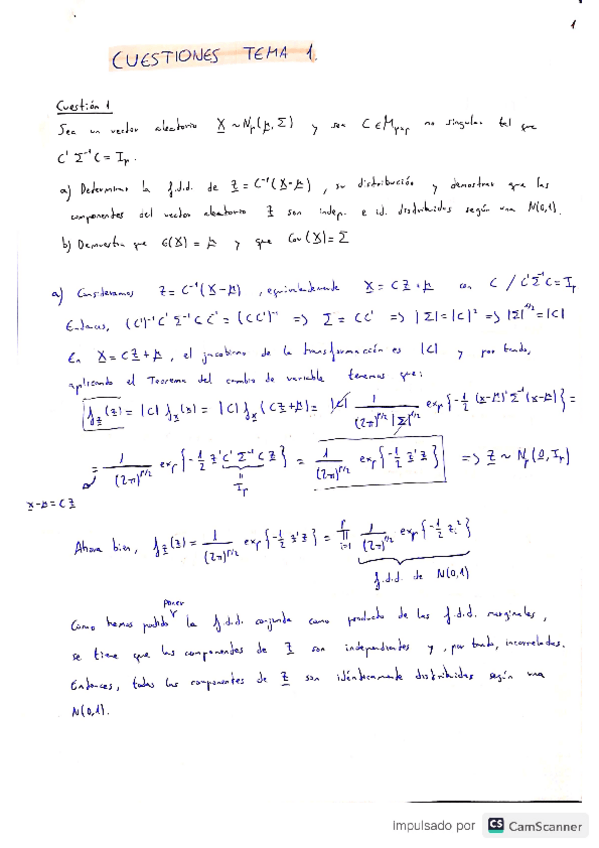 1
CUESTIONES TEMA 1.
Cuestión 1
Sea un vector aleatorio X ~ Np(μ, Σ) y sea C ∈ Mpxp no singular tal que
C' Σ⁻¹ C = Ip.
a) Determinar la f.d.d. de Z = C⁻¹(X-μ), su distribución y demostrar que las
componentes del vector aleatorio Z son indep. e id. distribuidas según una N(0,1).
b) Demuestra que E(X) = μ y que Cov(X) = Σ
a) Consideramos Z = C⁻¹(X-μ), equivalentemente X = CZ + μ con C / C'Σ⁻¹C = Ip
Entonces, (C')⁻¹C' Σ⁻¹ C C' = (CC')⁻¹ => Σ = CC' => |Σ| = |C|² => |Σ|^1/2 = |C|
En X = CZ + μ, el jacobiano de la transformación es |C| y por tanto,
aplicando el Teorema del cambio de variable tenemos que:
f_Z(z) = |C| f_X(x) = |C| f_X{Cz+μ} = |C| 1/((2π)^p/2 |Σ|^1/2) exp{-1/2 (x-μ)'Σ⁻¹(x-μ)} =
= 1/(2π)^p/2 exp{-1/2 z'C' Σ⁻¹ C z} = 1/(2π)^p/2 exp{-1/2 z'z} => Z ~ Np(0, Ip)
Ip
x-μ = Cz
Ahora bien, f_Z(z) = 1/(2π)^p/2 exp{-1/2 z'z} = ∏ i=1 p 1/(2π)^1/2 exp{-1/2 zi²}
f.d.d. de N(0,1)
Como hemos podido poner la f.d.d. conjunta como producto de las f.d.d. marginales,
se tiene que las componentes de Z son independientes y, por tanto, incorreladas.
Entonces, todas las componentes de Z son idénticamente distribuidas según una
N(0,1).
Impulsado por CS CamScanner